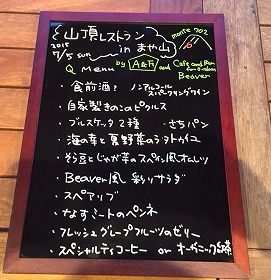 山頂レストラン
2015 7/5 sun in まや山
monte 702
Q Menu by A&F and Cafe and Bar
Beaver
・食前酒？ ノンアルコールスパークリングワイン
・自家製きのこピクルス
・ブルスケッタ2種 さらパン
・海の幸と夏野菜のラタトゥイユ
・そら豆とじゃが芋のスペイン風オムレツ
・Beaver風 彩りサラダ
・スペアリブ
・なすミートのペンネ
・フレッシュグレープフルーツのゼリー
・スペシャルティコーヒー or オーガニック紅茶